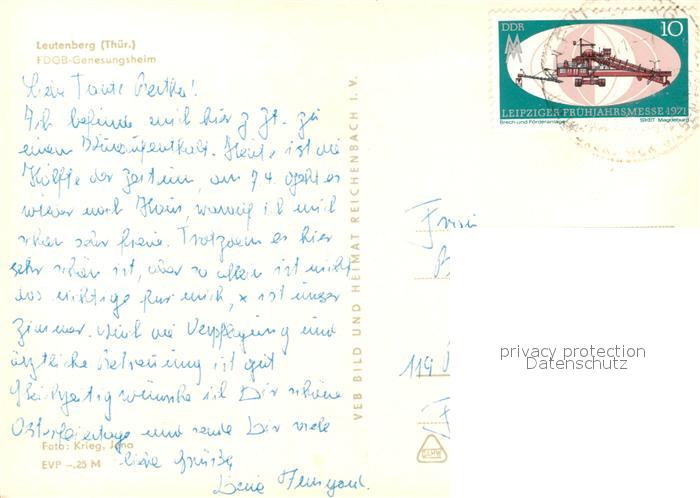 Leutenberg (Thür.)
FDGB-Genesungsheim
DDR
10
LEIPZIGER FRÜHJAHRSMESSE 1971
Brech- und Förderanlage
Liebe Tante Bertha!
Ich befinde mich hier z. Zt. zu
einem Kuraufenthalt. Heute ist die
Hälfte der Zeit um, am 7.4. geht es
wieder nach Haus, worauf ich mich
schon sehr freue. Trotzdem es hier
sehr schön ist, aber so allein ist nicht
das richtige für mich, x ist unser
Zimmer. Auch die Verpflegung und
ärztliche Betreuung ist gut
Gleichzeitig wünsche ich Dir schöne
Osterfeiertage und sende Dir viele
liebe Grüße
Deine
Foto: Krieg, Jena
EVP –.25 M
VEB BILD UND HEIMAT REICHENBACH I. V.
Frau
119
privacy protection
Datenschutz